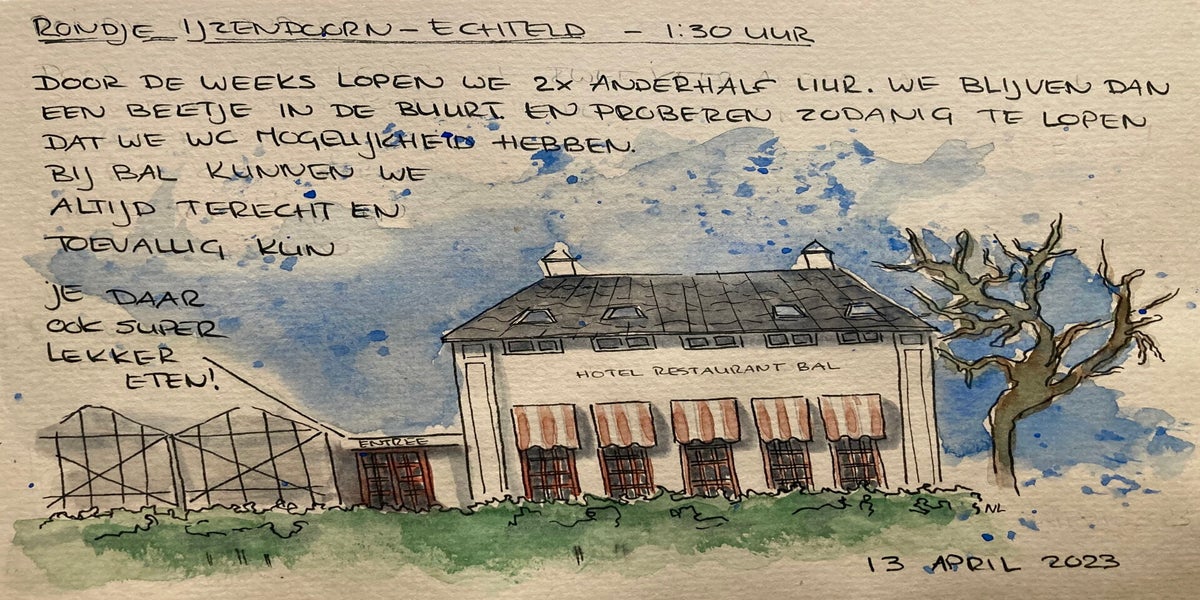 RONDJE IJZENDOORN - ECHTELD - 1:30 UUR
DOOR DE WEEKS LOPEN WE 2X ANDERHALF UUR. WE BLIJVEN DAN
EEN BEETJE IN DE BUURT EN PROBEREN ZODANIG TE LOPEN
DAT WE WC MOGELIJKHEID HEBBEN.
BIJ BAL KUNNEN WE
ALTIJD TERECHT EN
TOEVALLIG KUN
JE DAAR
OOK SUPER
LEKKER
ETEN!
HOTEL RESTAURANT BAL
ENTREE
NL
13 APRIL 2023